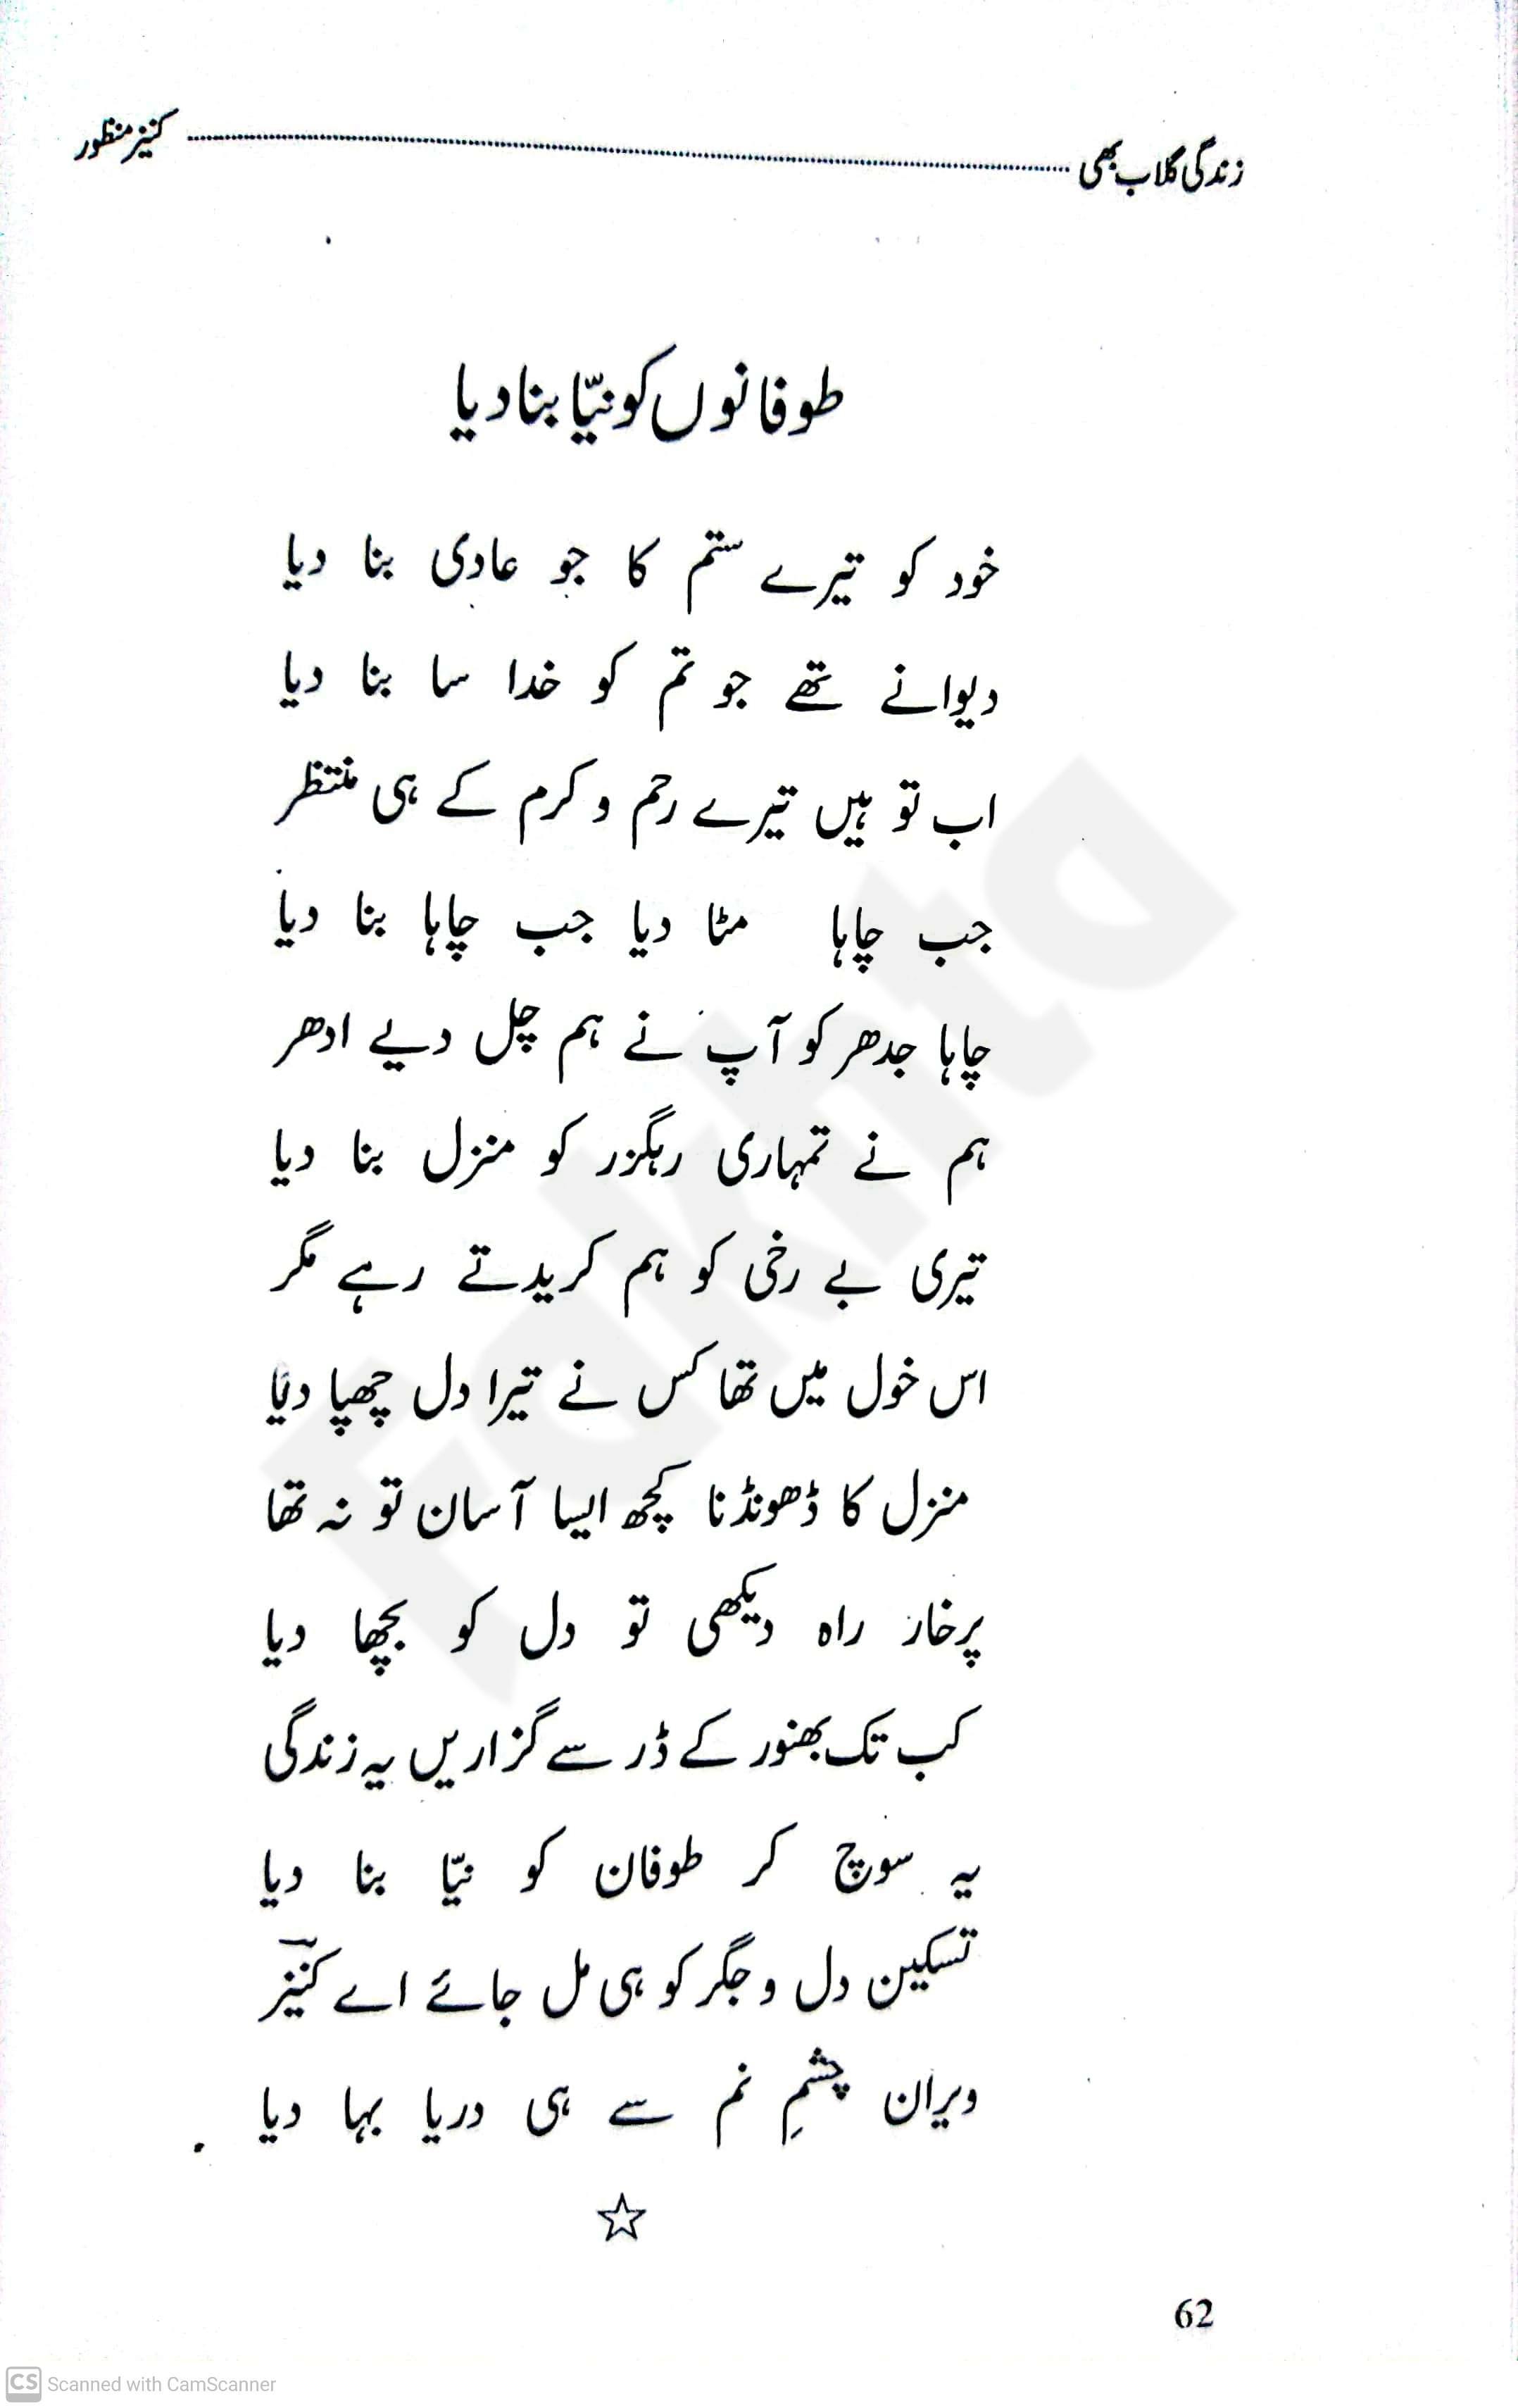 زندگی گلاب بھی ........................ کنیز منظور
طوفانوں کو نیّا بنا دیا
خود کو تیرے ستم کا جو عادی بنا دیا
دیوانے تھے جو تم کو خدا سا بنا دیا
اب تو ہیں تیرے رحم و کرم کے ہی منتظر
جب چاہا مٹا دیا جب چاہا بنا دیا
چاہا جدھر کو آپ نے ہم چل دیے ادھر
ہم نے تمہاری رہگزر کو منزل بنا دیا
تیری بے رخی کو ہم کریدتے رہے مگر
اس خول میں تھا کس نے تیرا دل چھپا دیا
منزل کا ڈھونڈنا کچھ ایسا آسان تو نہ تھا
پرخار راہ دیکھی تو دل کو بچھا دیا
کب تک بھنور کے ڈر سے گزاریں یہ زندگی
یہ سوچ کر طوفان کو نیّا بنا دیا
تسکین دل و جگر کو ہی مل جائے اے کنیزؔ
ویران چشمِ نم سے ہی دریا بہا دیا
☆
62
Fakhta
CS Scanned with CamScanner